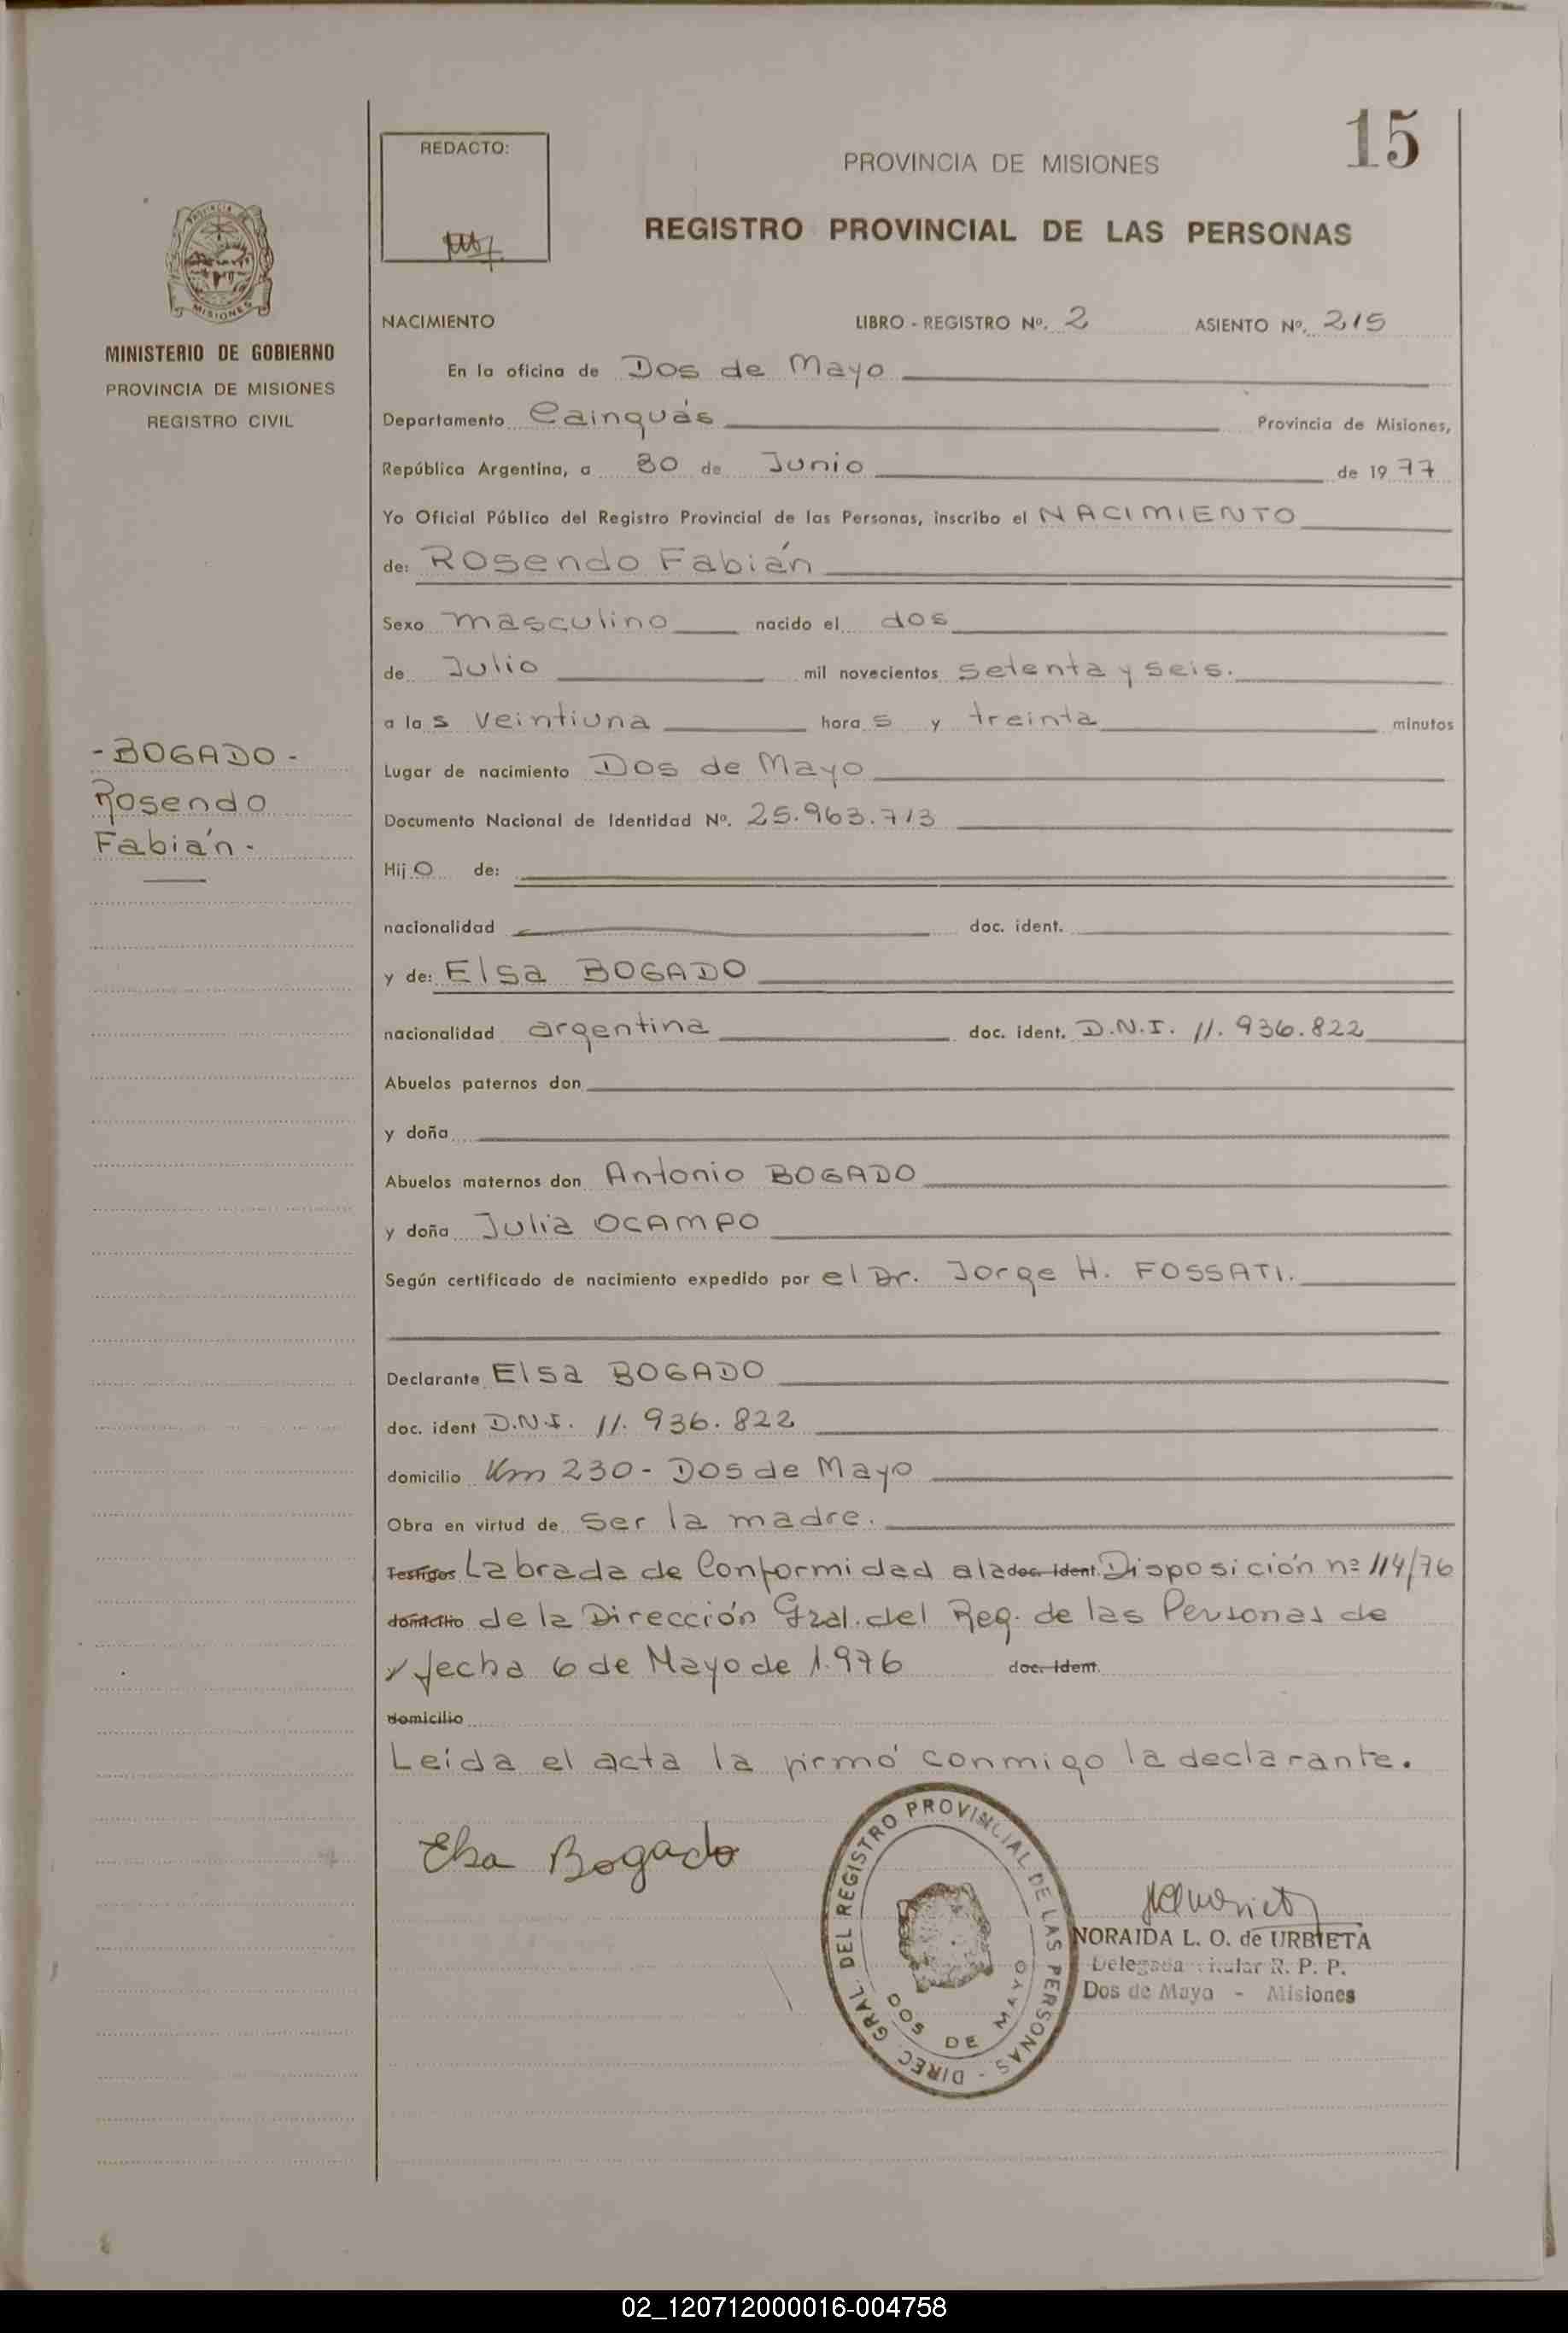 15
REDACTO:
PROVINCIA DE MISIONES
REGISTRO PROVINCIAL DE LAS PERSONAS
MISIONES
MINISTERIO DE GOBIERNO
PROVINCIA DE MISIONES
REGISTRO CIVIL
NACIMIENTO LIBRO - REGISTRO Nº. 2 ASIENTO Nº. 215
En la oficina de Dos de Mayo
Departamento Cainguás Provincia de Misiones,
República Argentina, a 30 de Junio de 1977
Yo Oficial Público del Registro Provincial de las Personas, inscribo el NACIMIENTO
de: Rosendo Fabián
Sexo masculino nacido el dos
de Julio mil novecientos setenta y seis.
a las veintiuna horas y treinta minutos
- BOGADO -
Rosendo
Fabián.
Lugar de nacimiento Dos de Mayo
Documento Nacional de Identidad Nº. 25.963.713
Hijo de:
nacionalidad doc. ident.
y de: Elsa BOGADO
nacionalidad argentina doc. ident. D.N.I. 11.936.822
Abuelos paternos don
y doña
Abuelos maternos don Antonio BOGADO
y doña Julia OCAMPO
Según certificado de nacimiento expedido por el Dr. Jorge H. FOSSATI.
Declarante Elsa BOGADO
doc. ident D.N.I. 11.936.822
domicilio Km 230 - Dos de Mayo
Obra en virtud de ser la madre.
Testigos Labrada de Conformidad a la doc. ident. Disposición nº 114/76
domicilio de la Dirección Gral. del Reg. de las Personas de
y fecha 6 de Mayo de 1.976 doc. ident.
domicilio
Leida el acta la firmó conmigo la declarante.
Elsa Bogado
DIREC. GRAL. DEL REGISTRO PROVINCIAL DE LAS PERSONAS -
DOS DE MAYO
NORAIDA L. O. de URBIETA
Delegada Titular R. P. P.
Dos de Mayo - Misiones
02_120712000016-004758